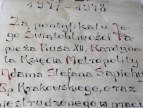 1947-1948
Za pontyfikatu Je-
go Świątobliwości Pa-
pieża Piusa XII, Kardyna-
ła Księcia Metropolity
Adama Stefana Sapiehy
Bp. Krakowskiego, oraz
niestrudzonego w pracy